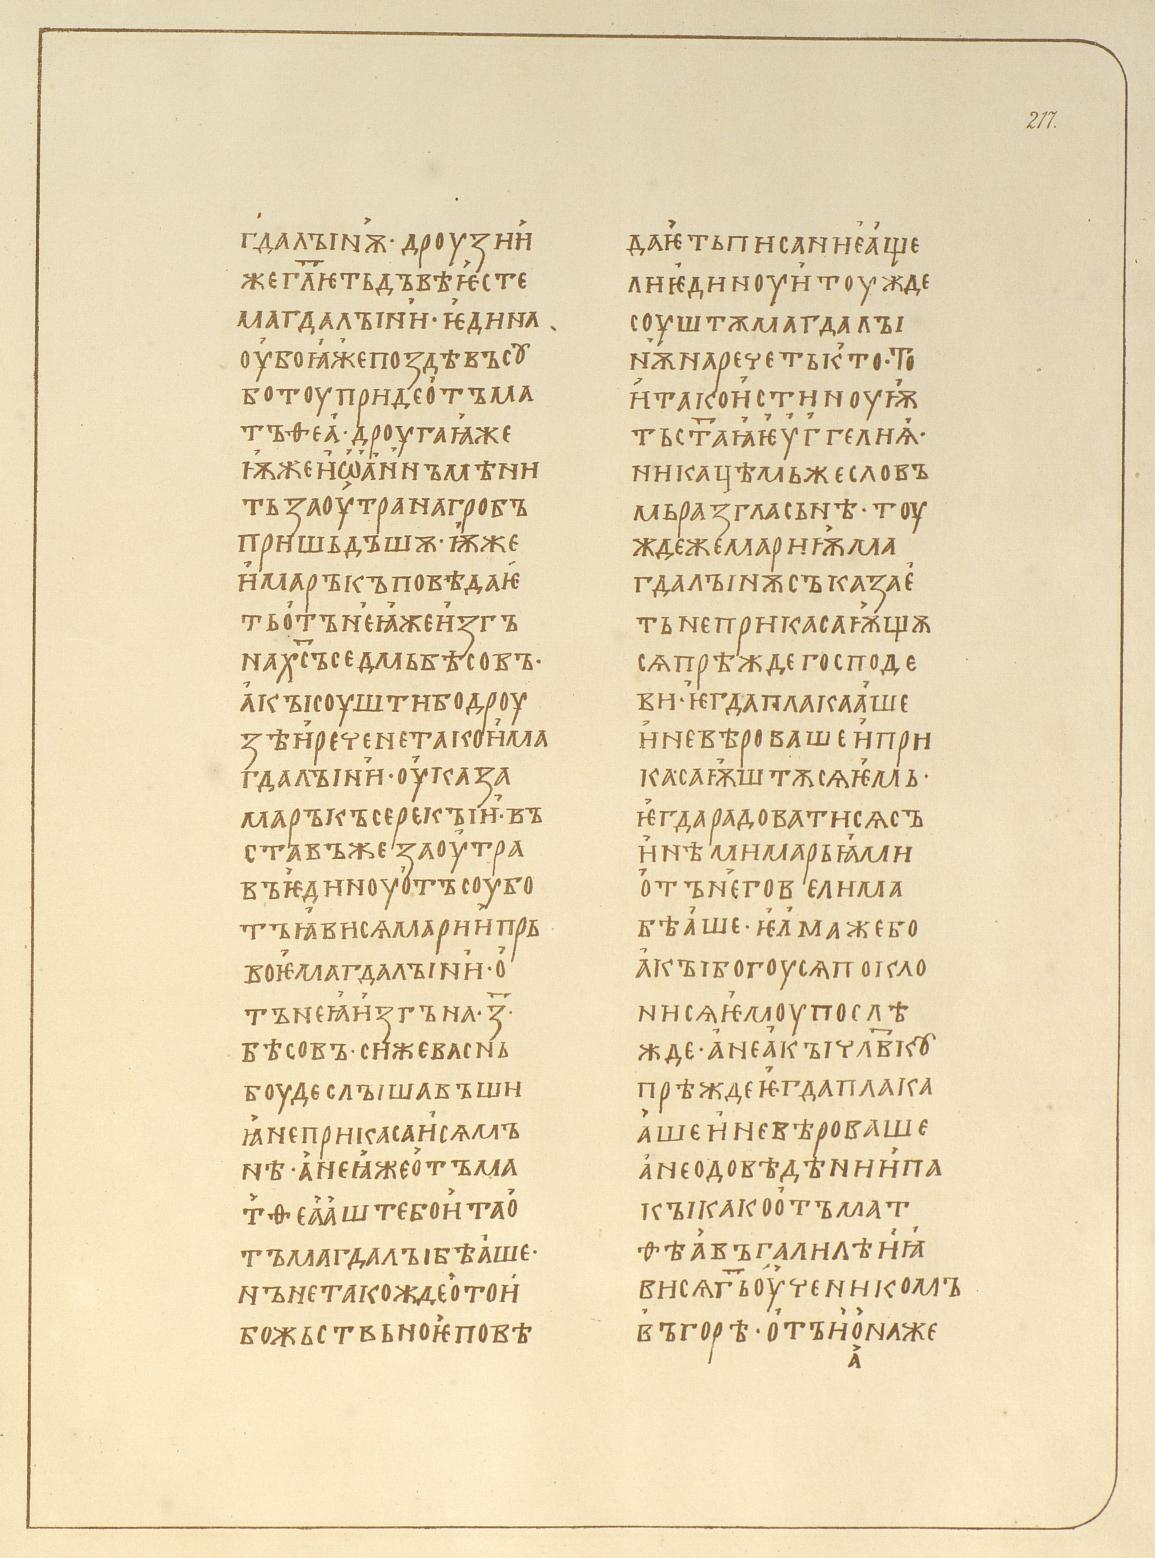 217.
гдалꙑнѫ· дроуꙁии
же гл҃ѥть дъвѣ ѥсте
магдалꙑни· ѥдина
оубо ꙗже поꙁдѣ въ сꙋ
ботоу приде отъ ма
тъѳеа· дроугаꙗ же
ѭже иѡаннъ мѣни
ть ꙁаоутра на гробъ
пришьдъшѫ· ѭже
и маръкъ повѣдаѥ
ть отъ неꙗже иꙁгъ
на хс҃ъ седмь бѣсовъ·
акꙑ соушти бо дроу
ꙁѣи речене тако и ма
гдалꙑни· оуказа
маръкъ серекꙑи· въ
ставъ же ꙁаоутра
въ ѥдиноу отъ соубо
тъ ꙗви сѧ марии прь
воѥ магдалꙑни· о
тъ неꙗ иꙁгъна· ꙁ҃·
бѣсовъ· си же васнь
боуде слꙑшавъши
ꙗ не прикасаи сѧ мъ
нѣ· а не ꙗже отъ ма
тѳеа аште бо и та о
тъ магдалꙑ бѣаше·
нъ не такожде о тои
божьствьноѥ повѣ
даѥть писаниѥ аще
ли ѥдиноу и тоужде
соуштѫ магдалꙑ
нѫ наречеть кто· то
и тако истиноуѭ
ть ст҃аꙗ ѥуггелиꙗ·
ни кацѣмь же словъ
мь раꙁгласьнѣ· тоу
жде же мариѭ ма
гдалꙑнѫ съкаꙁае
ть не прикасаѭщѫ
сѧ прѣжде господе
ви· ѥгда плакааше
и не вѣроваше и при
касаѭштѫ сѧ ѥмь·
ѥгда радовати сѧ съ
и нѣ ми марьꙗми
отъ него велима
бѣаше· ѥлма же бо
акꙑ богоу сѧ покло
ни сѧ ѥмоу послѣ
жде· а не акꙑ чл҃вкꙋ
прѣжде ѥгда плака
аше и не вѣроваше
ане одовѣдѣнии па
кꙑ како отъ мат
ѳѣа въ галилѣи ꙗ
ви сѧ г҃ь оученикомъ
въ горѣ· отъ иона же
а